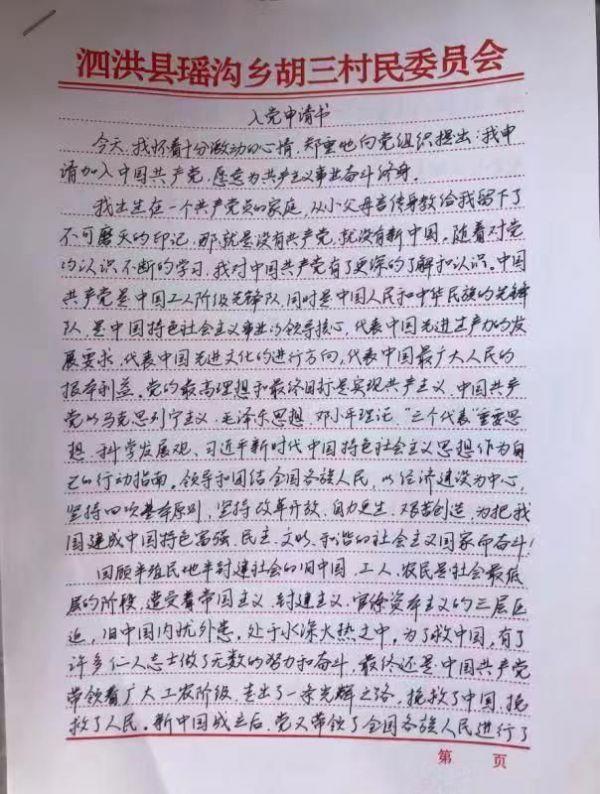 泗洪县瑶沟乡胡三村民委员会
入党申请书
今天,我怀着十分激动的心情,郑重地向党组织提出:我申
请加入中国共产党,愿意为共产主义事业奋斗终身。
我出生在一个共产党员的家庭,从小父母言传身教给我留下了
不可磨灭的印记,那就是没有共产党,就没有新中国。随着对党
的认识不断的学习,我对中国共产党有了更深的了解和认识。中国
共产党是中国工人阶级先锋队,同时是中国人民和中华民族的先锋
队,是中国特色社会主义事业的领导核心,代表中国先进生产力的发
展要求,代表中国先进文化的进行方向,代表中国最广大人民的
根本利益。党的最高理想和最终目标是实现共产主义,中国共产
党以马克思列宁主义、毛泽东思想、邓小平理论、“三个代表”重要思
想、科学发展观、习近平新时代中国特色社会主义思想作为自
己的行动指南。领导和团结全国各族人民,以经济建设为中心,
坚持四项基本原则,坚持改革开放,自力更生,艰苦创造,为把我
国建成中国特色富强、民主、文明、和谐的社会主义国家而奋斗!
回顾半殖民地半封建社会的旧中国,工人、农民是社会最低
层的阶段,遭受着帝国主义、封建主义、官僚资本主义的三层压
迫,旧中国内忧外患,处于水深火热之中,为了救中国,有了
许多仁人志士做了无数的努力和奋斗,最终还是中国共产党
带领着广大工农阶级,走出了一条光辉之路,挽救了中国,挽
救了人民。新中国成立后,党又带领了全国各族人民进行了
第 页